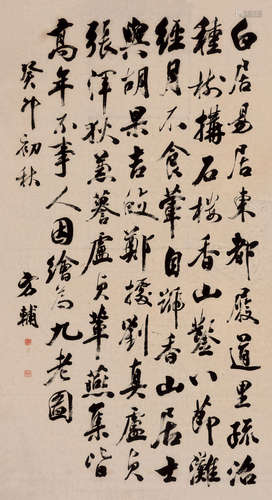 白居易居東都履道里疏治
種樹搆石樓香山鑿八節灘
經月不食葷自號香山居士
與胡杲吉皎鄭據劉真盧貞
張渾狄兼謩盧貞輩燕集皆
高年不事人因繪為九老圖
癸卯初秋
輔